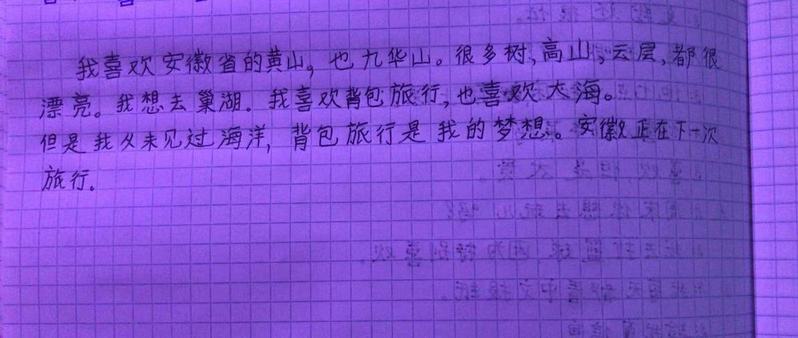 我喜欢安徽省的黄山，也九华山。很多树，高山，云层，都很
漂亮。我想去巢湖。我喜欢背包旅行，也喜欢大海。
但是我从未见过海洋，背包旅行是我的梦想。安徽正在下一次
旅行.